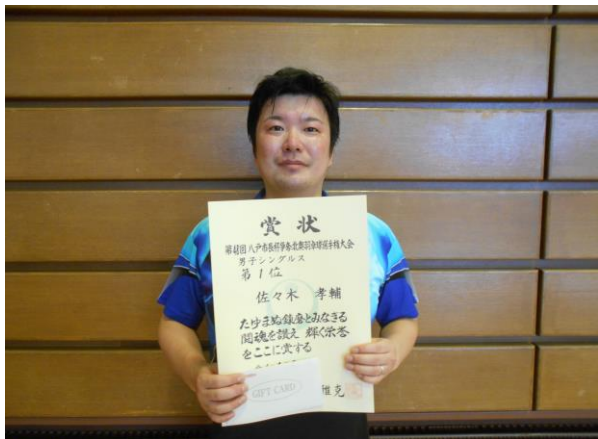 賞状
第41回八戸市長杯争奪北奥羽卓球選手権大会
男子シングルス
第1位
佐々木 孝輔
たゆまぬ錬磨とみなぎる
闘魂を讃え 輝く栄誉
をここに賞する
雅克
GIFT CARD